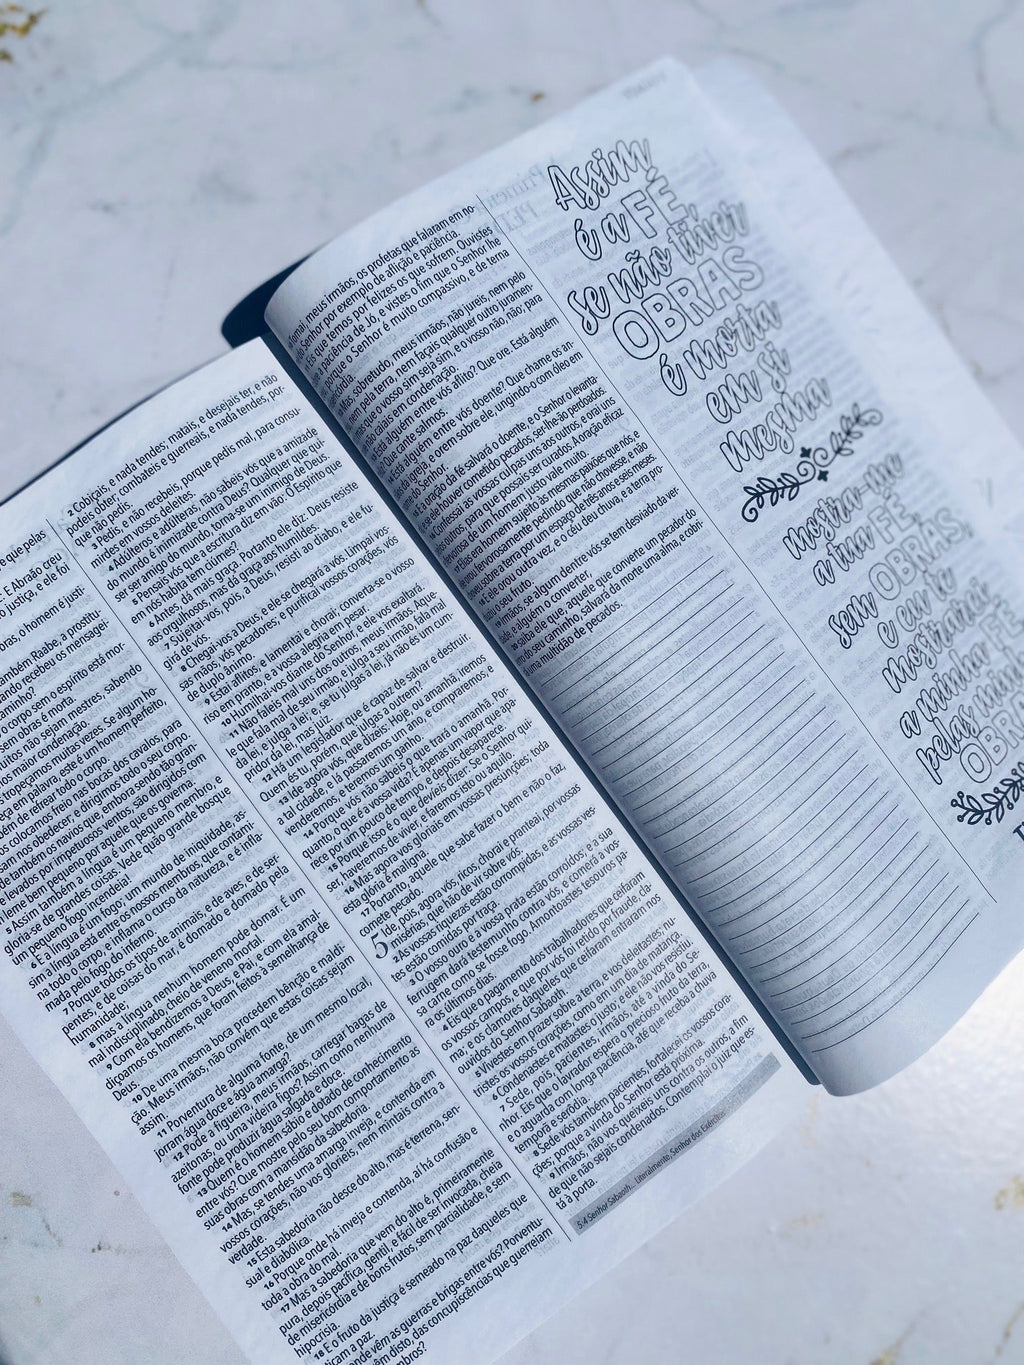 e que pelas
E Abraão creu
o justiça, e ele foi
oras, o homem é justi-
também Raabe, a prostitu-
ando recebeu os mensagei-
aminho?
o corpo sem o espírito está mor-
sem obras é morta.
uitos não sejam mestres, sabendo
os maior condenação.
s tropeçamos muitas vezes. Se algum ho-
eça em palavra, este é um homem perfeito,
bém de refrear todo o corpo.
os colocamos freio nas bocas dos cavalos, para
sam nos obedecer; e dirigimos todo o seu corpo.
de também os navios que, embora sendo tão gran-
e levados por impetuosos ventos, são dirigidos com
n leme bem pequeno por aquele que os governa.
5 Assim também a língua é um pequeno membro, e
gloria-se de grandes coisas. Vede quão grande bosque
um pequeno fogo incendeia!
6 E a língua é um fogo; um mundo de iniquidade, as-
sim a língua está entre os nossos membros, que contami-
na todo o corpo, e inflama o curso da natureza, e é infla-
mada pelo fogo do inferno.
7 Porque todos os tipos de animais, e de aves, e de ser-
pentes, e de coisas do mar, é domado e domado pela
humanidade;
8 mas a língua nenhum homem pode domar. É um
mal indisciplinado, cheio de veneno mortal.
9 Com ela bendizemos a Deus, e Pai, e com ela amal-
diçoamos os homens, que foram feitos à semelhança de
Deus.
10 De uma mesma boca procedem bênção e maldi-
ção. Meus irmãos, não convém que estas coisas sejam
assim.
11 Porventura de alguma fonte, de um mesmo local,
jorram água doce e água amarga?
12 Pode a figueira, meus irmãos, carregar bagas de
azeitonas, ou uma videira figos? Assim como nenhuma
fonte pode produzir água salgada e doce.
13 Quem é o homem sábio e dotado de conhecimento
entre vós? Que mostre pelo seu bom comportamento as
suas obras com a mansidão da sabedoria.
14 Mas, se tendes uma amarga inveja, e contenda em
vossos corações, não vos glorieis, nem mintais contra a
verdade.
15 Esta sabedoria não desce do alto, mas é terrena, sen-
sual e diabólica.
16 Porque onde há inveja e contenda, aí há confusão e
toda a obra do mal.
17 Mas a sabedoria que vem do alto é, primeiramente
pura, depois pacífica, gentil, e fácil de ser invocada, cheia
de misericórdia e de bons frutos, sem parcialidade, e sem
hipocrisia.
18 E o fruto da justiça é semeado na paz daqueles que
ticam a paz.
onde vêm as guerras e brigas entre vós? Porventu-
êm disto, das concupiscências que guerreiam
mbros?
2 Cobiçais, e nada tendes; matais, e desejais ter, e não
podeis obter; combateis e guerreais, e nada tendes, por-
que não pedis.
3 Pedis, e não recebeis, porque pedis mal, para consu-
mirdes em vossos deleites.
4 Adúlteros e adúlteras, não sabeis vós que a amizade
do mundo é inimizade contra Deus? Qualquer que qui-
ser ser amigo do mundo, torna-se um inimigo de Deus.
5 Pensais vós que a escritura diz em vão: O Espírito que
em nós habita tem ciúmes?
6 Antes, dá mais graça. Portanto ele diz: Deus resiste
aos orgulhosos, mas dá graça aos humildes.
7 Sujeitai-vos, pois, a Deus, resisti ao diabo, e ele fu-
girá de vós.
8 Chegai-vos a Deus, e ele se chegará a vós. Limpai vos-
sas mãos, vós pecadores; e purificai vossos corações, vós
de duplo ânimo.
9 Estai aflitos, e lamentai e chorai; converta-se o vosso
riso em pranto, e a vossa alegria em pesar.
10 Humilhai-vos diante do Senhor, e ele vos exaltará.
11 Não faleis mal uns dos outros, meus irmãos. Aque-
le que fala mal de seu irmão, e julga a seu irmão, fala mal
da lei, e julga a lei; e, se tu julgas a lei, já não és um cum-
pridor da lei, mas juiz.
12 Há um legislador que é capaz de salvar e destruir.
Quem és tu, porém, que julgas a outrem?
13 Ide agora vós, que dizeis: Hoje, ou amanhã, iremos
a tal cidade, e lá passaremos um ano, e compraremos, e
venderemos, e teremos um ganho;
14 Porque vós não sabeis o que trará o amanhã. Por-
quanto, o que é a vossa vida? É apenas um vapor que apa-
rece por um pouco de tempo, e depois desaparece.
15 Porque isso é o que devíeis dizer: Se o Senhor qui-
ser haveremos de viver, e faremos isto ou aquilo.
16 Mas agora vos gloriais em vossas presunções; toda
esta glória é maligna.
17 Portanto, aquele que sabe fazer o bem e não o faz
comete pecado.
5 Ide, pois, agora vós, ricos, chorai e pranteai, por vossas
misérias, que hão de vir sobre vós.
2 As vossas riquezas estão corrompidas, e as vossas ves-
tes estão comidas por traça.
3 O vosso ouro e a vossa prata estão corroídos; e a sua
ferrugem dará testemunho contra vós, e comerá a vos-
sa carne, como se fosse fogo. Amontoastes tesouros pa-
ra os últimos dias.
4 Eis que o pagamento dos trabalhadores que ceifaram
os vossos campos, e que por vós foi retido por fraude, cla-
ma; e os clamores daqueles que ceifaram entraram nos
ouvidos do Senhor Sabaoth.
5 Vivestes em prazer sobre a terra, e vos deleitastes; nu-
tristes os vossos corações, como em um dia de matança.
6 Condenastes e matastes o justo, e ele não vos resistiu.
7 Sede, pois, pacientes, irmãos, até a vinda do Se-
nhor. Eis que o lavrador espera o precioso fruto da terra,
e o aguarda com longa paciência, até que receba a chuva
temporã e serôdia.
8 Sede vós também pacientes, fortalecei os vossos cora-
ções; porque a vinda do Senhor está próxima.
9 Irmãos, não vos queixeis uns contra os outros, a fim
de que não sejais condenados. Contemplai o juiz que es-
tá à porta.
5:4 Senhor Sabaoth... Literalmente, Senhor dos Exércitos
omai, meus irmãos, os profetas que falaram em no-
do Senhor por exemplo de aflição e paciência.
Eis que temos por felizes os que sofrem. Ouvistes
a paciência de Jó, e vistes o fim que o Senhor lhe
porque o Senhor é muito compassivo, e de terna
córdia.
Mas sobretudo, meus irmãos, não jureis, nem pelo
nem pela terra, nem façais qualquer outro juramen-
mas que o vosso sim seja sim, e o vosso não, não; para
não caiais em condenação.
Está alguém entre vós aflito? Que ore. Está alguém
Que cante salmos.
Está alguém entre vós doente? Que chame os an-
da igreja, e orem sobre ele, ungindo-o com óleo em
do Senhor.
E a oração da fé salvará o doente, e o Senhor o levanta-
e se ele houver cometido pecados, ser-lhe-ão perdoados.
Confessai as vossas culpas uns aos outros, e orai uns
outros, para que possais ser curados. A oração eficaz
de um homem justo vale muito.
Elias era homem sujeito às mesmas paixões que nós e
orou fervorosamente pedindo que não chovesse, e não
sobre a terra por um espaço de três anos e seis meses.
E ele orou outra vez, e o céu deu chuva, e a terra pro-
o seu fruto.
Irmãos, se algum dentre vós se tem desviado da ver-
e alguém o converter,
saiba ele que, aquele que converte um pecador do
do seu caminho, salvará da morte uma alma, e cobri-
uma multidão de pecados.
Assim
é a FÉ,
se não tiver
OBRAS
é morta
em si
mesma
mostra-me
a tua FÉ
sem OBRAS,
e eu te
mostrarei
a minha FÉ
pelas minh
OBRA